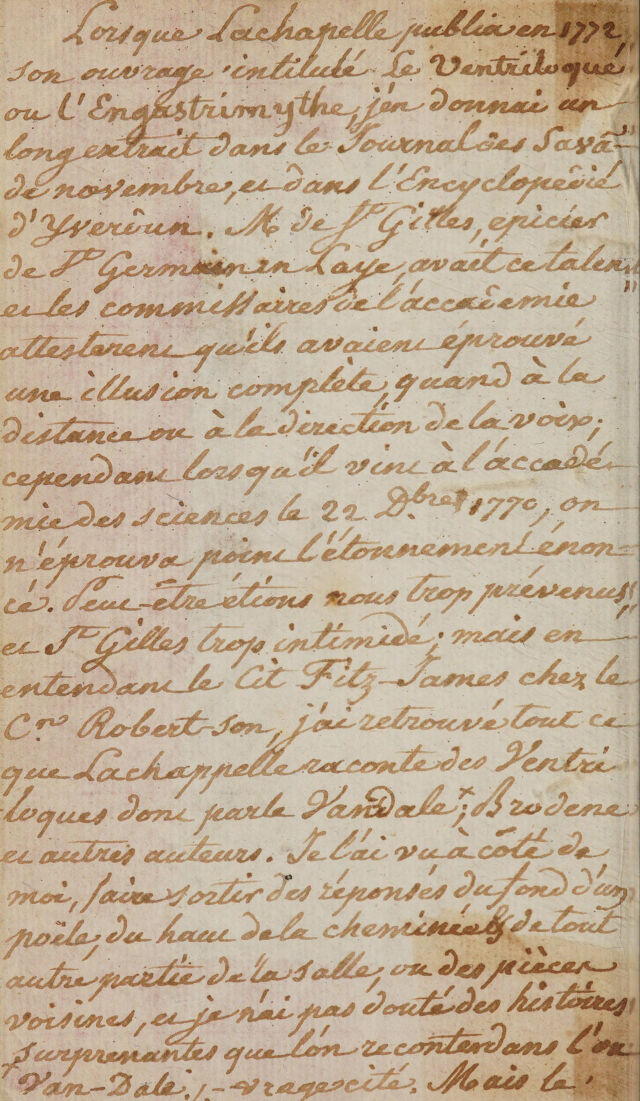 Lorsque Lachapelle publia en 1772,
son ouvrage intitulé Le Ventriloque
ou l'Engastrimythe, j'en donnai un
long extrait dans le Journal des Savã
de novembre, et dans l'Encyclopédie
d'Yverdun. M de St Gilles, epicier
de St Germain en Laye, avait ce talen
et les commissaires de l'accademie
attesterent qu'ils avaient éprouvé
une illusion complète, quand à la
distance ou à la direction de la voix;
cependant lorsqu'il vint à l'accadé-
mie des sciences le 22 Dbre 1770, on
n'éprouva point l'étonnement énon-
cé. Peut-être étions nous trop prévenus
et St Gilles trop intimidé; mais en
entendant le Cit Fitz-James chez le
Cen Robert-son, j'ai retrouvé tout ce
que Lachappelle raconte des Ventri
loques dont parle Vandale x; Brodene
et autres auteurs. Je l'ai vu à côté de
moi, faire sortir des réponses du fond d'un
poële, du haut de la cheminée, de tout
autre partie de la salle, ou des pièces
voisines, et je n'ai pas douté des histoires
surprenantes que l'on recontent dans l'ou
x Van-Dale. - vrage cité. Mais le